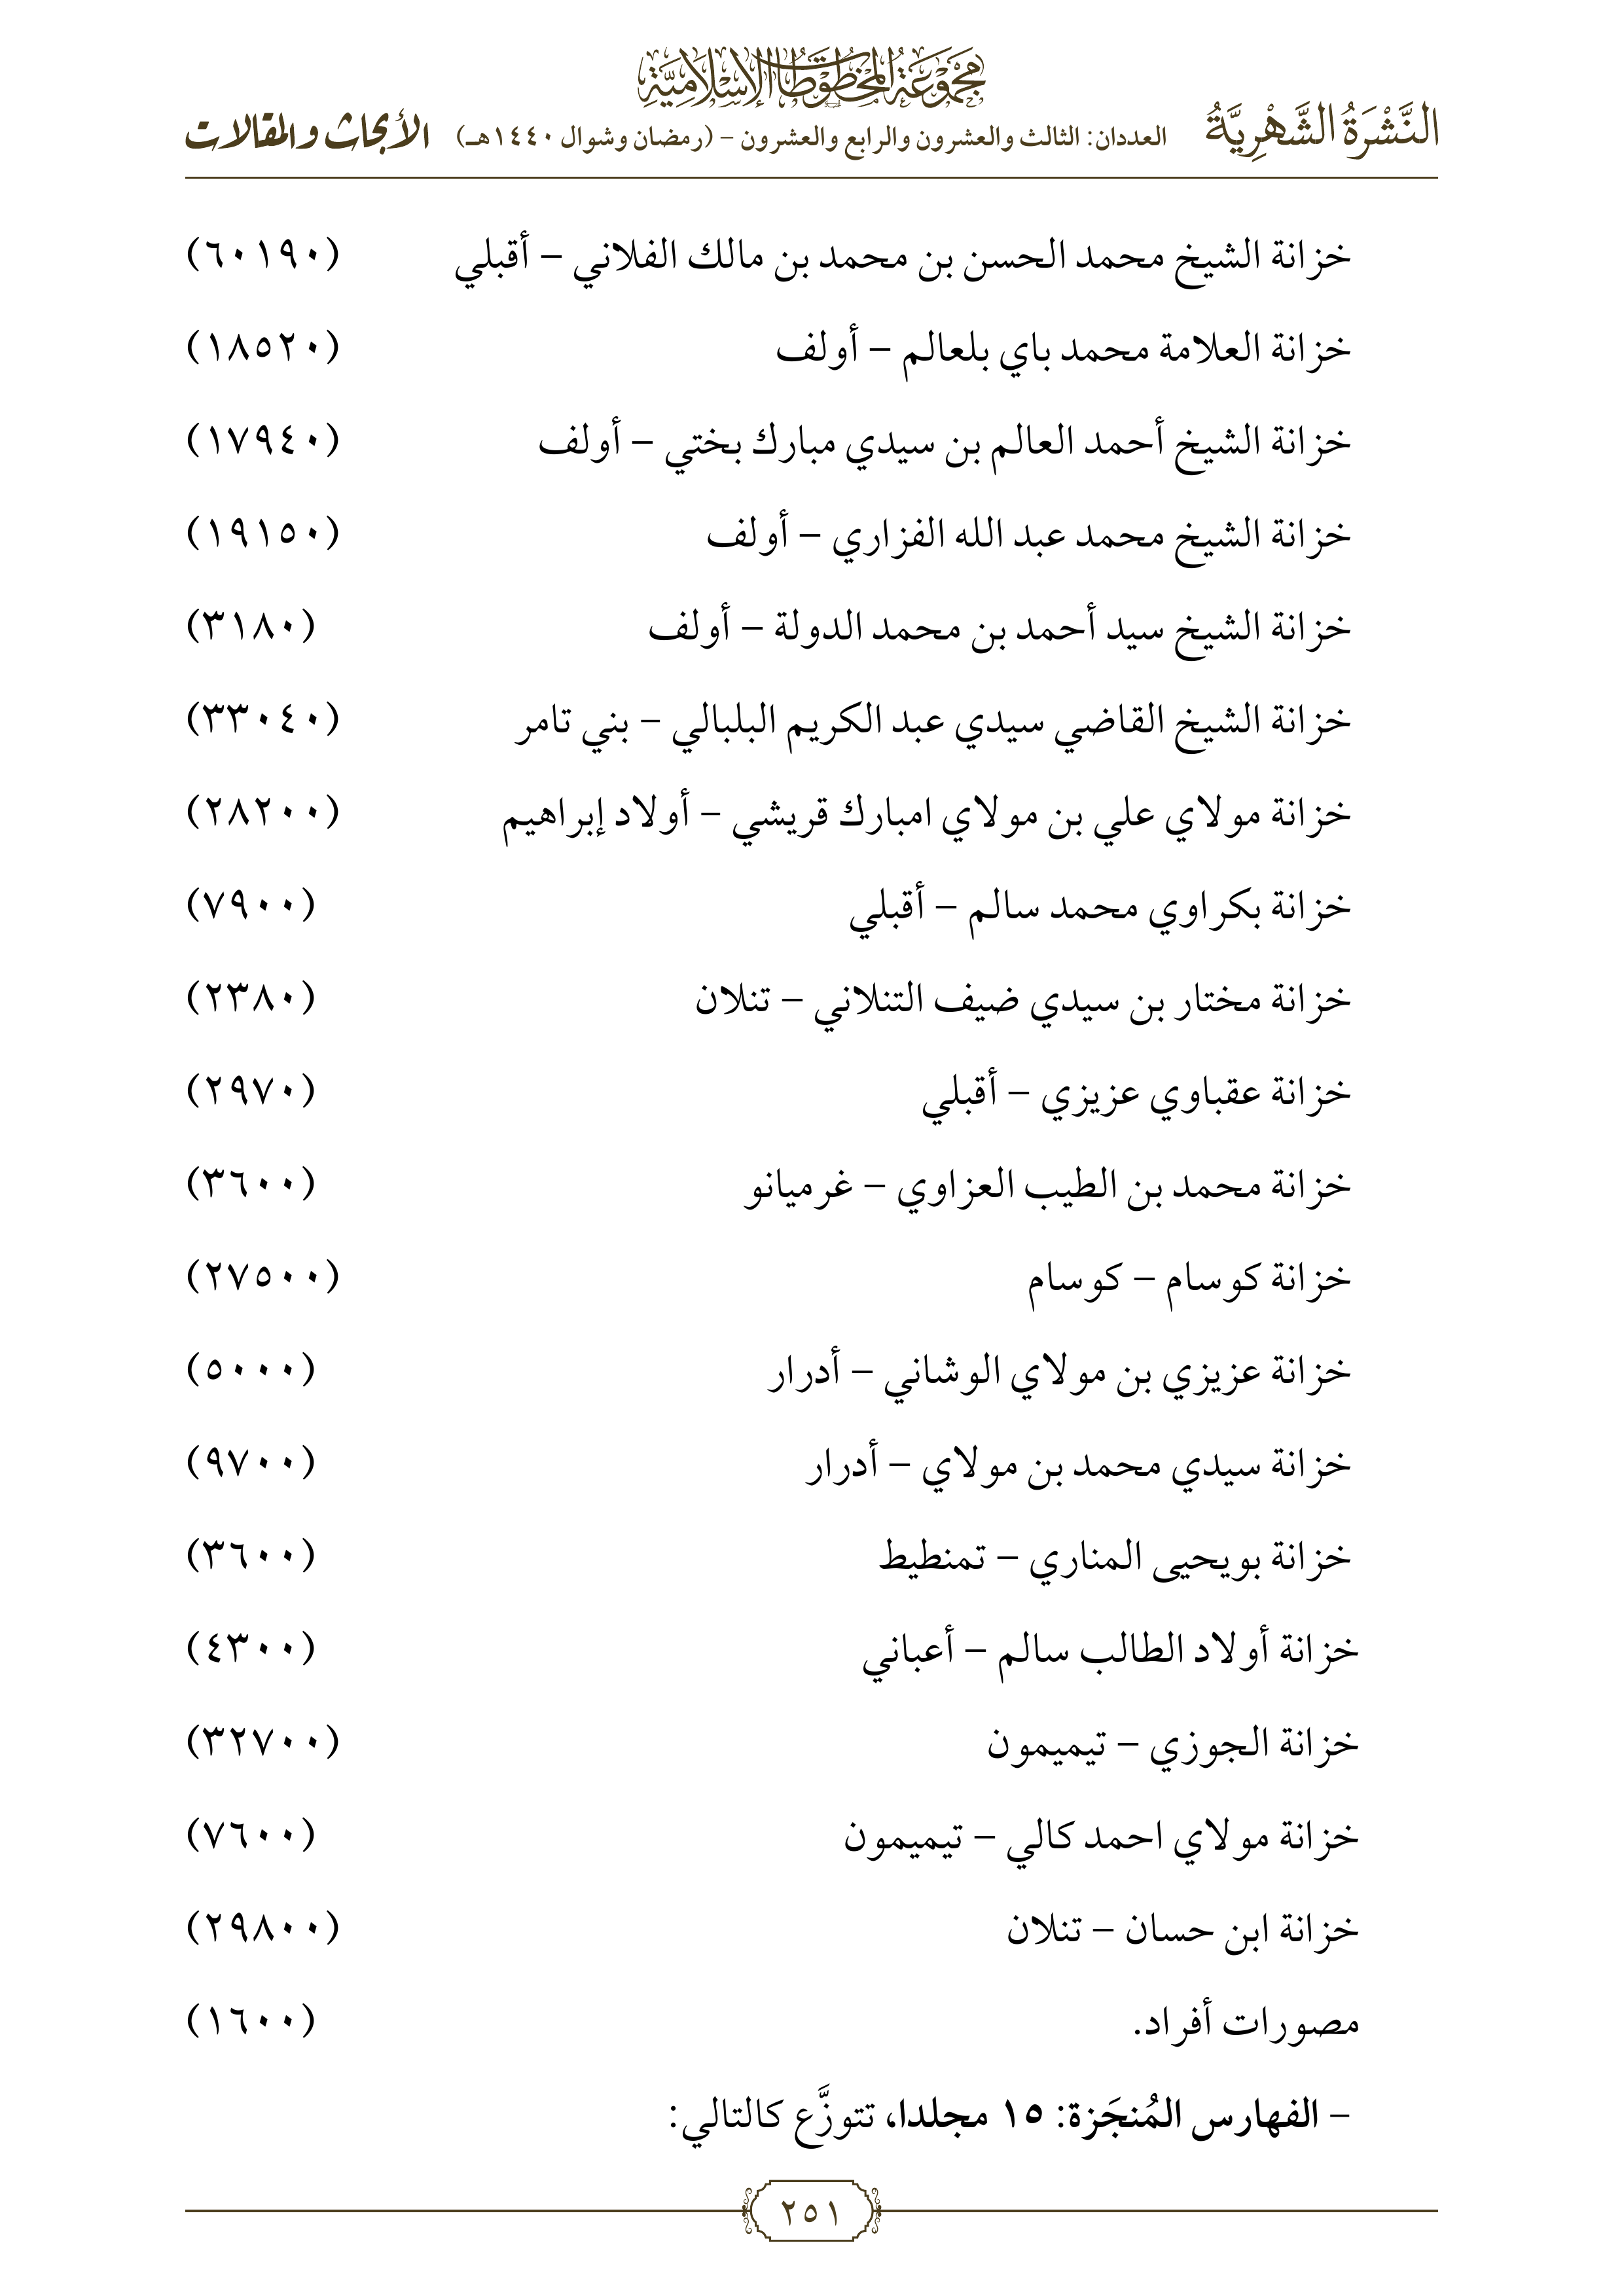 مَجْمُوعَةُ المَخْطُوطَاتِ الإِسْلَامِيَّةِ
النَّشْرَةُ الشَّهْرِيَّةُ العددان: الثالث والعشرون والرابع والعشرون – (رمضان وشوال ١٤٤٠هـ) الأبحاث والمقالات
خزانة الشيخ محمد الحسن بن محمد بن مالك الفلاني – أقبلي (٦٠١٩٠)
خزانة العلامة محمد باي بلعالم – أولف (١٨٥٢٠)
خزانة الشيخ أحمد العالم بن سيدي مبارك بختي – أولف (١٧٩٤٠)
خزانة الشيخ محمد عبد الله الفزاري – أولف (١٩١٥٠)
خزانة الشيخ سيد أحمد بن محمد الدولة – أولف (٣١٨٠)
خزانة الشيخ القاضي سيدي عبد الكريم البلبالي – بني تامر (٣٣٠٤٠)
خزانة مولاي علي بن مولاي امبارك قريشي – أولاد إبراهيم (٢٨٢٠٠)
خزانة بكراوي محمد سالم – أقبلي (٧٩٠٠)
خزانة مختار بن سيدي ضيف التنلاني – تنلان (٢٣٨٠)
خزانة عقباوي عزيزي – أقبلي (٢٩٧٠)
خزانة محمد بن الطيب العزاوي – غرميانو (٣٦٠٠)
خزانة كوسام – كوسام (٢٧٥٠٠)
خزانة عزيزي بن مولاي الوشاني – أدرار (٥٠٠٠)
خزانة سيدي محمد بن مولاي – أدرار (٩٧٠٠)
خزانة بويحيى المناري – تمنطيط (٣٦٠٠)
خزانة أولاد الطالب سالم – أعباني (٤٣٠٠)
خزانة الجوزي – تيميمون (٣٢٧٠٠)
خزانة مولاي احمد كالي – تيميمون (٧٦٠٠)
خزانة ابن حسان – تنلان (٢٩٨٠٠)
مصورات أفراد. (١٦٠٠)
– الفهارس المُنجَزة: ١٥ مجلدا، تتوزَّع كالتالي:
٢٥١